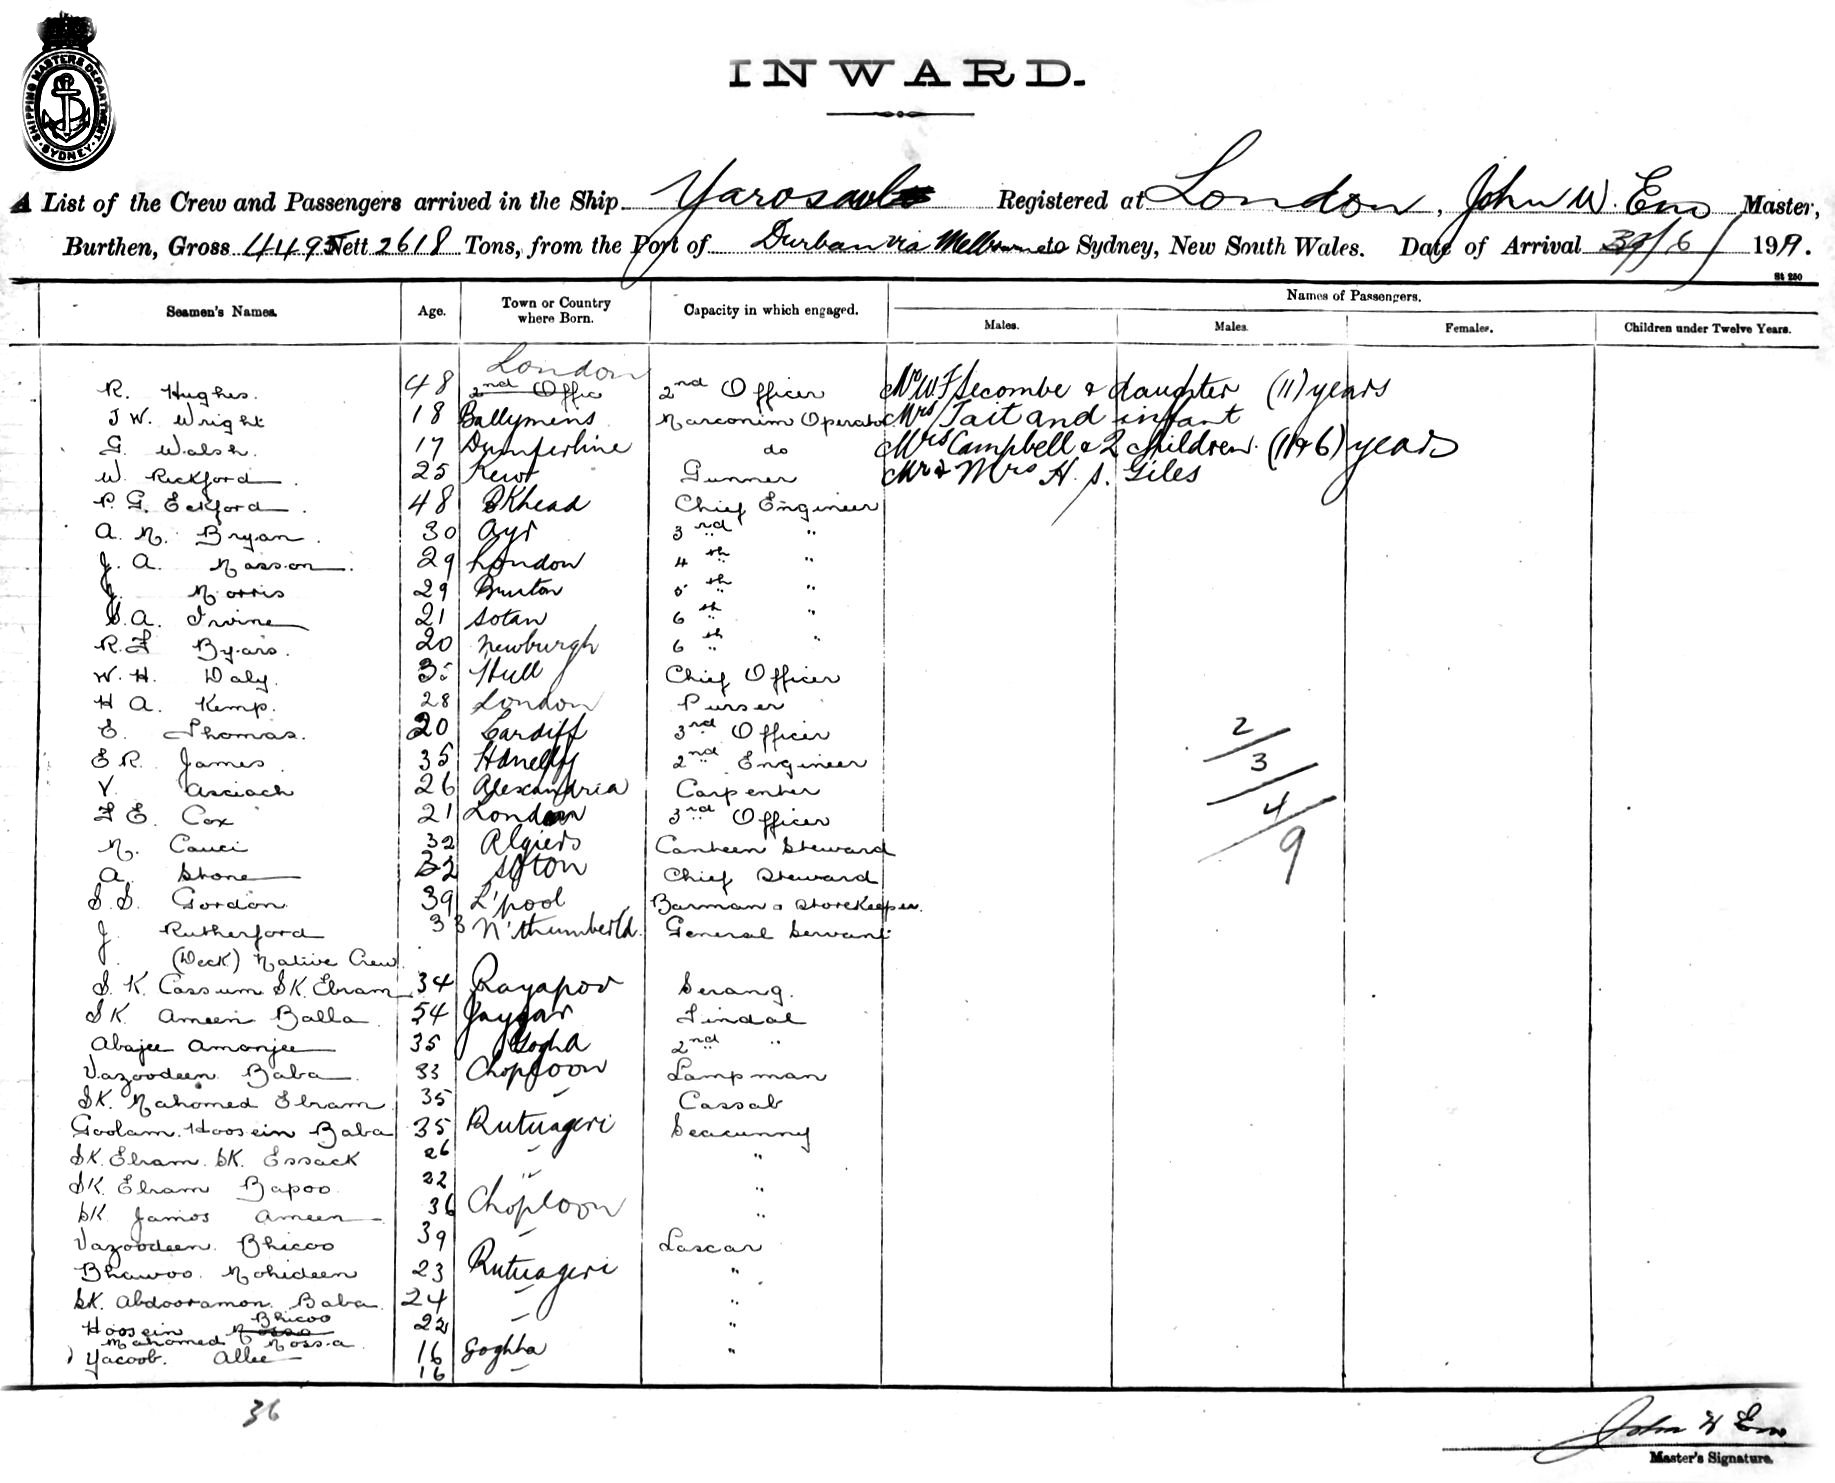 SHIPPING MASTERS DEPARTMENT
SYDNEY
INWARD.
A List of the Crew and Passengers arrived in the Ship Registered at London, John W. Eno Master,
Burthen, Gross 4495 Nett 2618 Tons, from the Port of Durban via Melbourne to Sydney, New South Wales. Date of Arrival 1919.
St 250
Seamen's Names. Age. Town or Country where Born. Capacity in which engaged. Names of Passengers.
Males. Males. Females. Children under Twelve Years.
London
R. Hughes. 48 2nd Offic 2nd Officer Secombe & daughter (11) years
J W. Wright 18 Ballymens Marconim Operator. Mrs Tait and infant
G. Walsh. 17 Dumferline do Mrs Campbell & 2 children. (11 & 6) years
W. Rickford. 25 Kew Gunner Mr & Mrs H. S. Giles
P. G. Eckford. 48 BKhead Chief Engineer
A. M. Bryan. 30 Ayr 3rd "
J. A. Masson. 29 London 4th "
J. Morris 29 Burton 5th "
S. A. Irvine 21 Soton 6th "
R. F Byars. 20 Newburgh 6th "
W. H. Daly. 35 Hull Chief Officer
H A. Kemp. 28 London Purser
E. Thomas. 20 Cardiff 3rd Officer 2/
E R. James 35 2nd Engineer 3/
V. Asciach 26 Alexandria Carpenter
F E. Cox 21 London 3rd Officer 4/
M. Cauci 32 Algiers Canteen Steward 9
A. Stone 32 Soton Chief Steward
S. S. Gordon 39 L'pool Barman & Storekeeper.
J. Rutherford 33 N'thumberld. General Servant
J. (Deck) Native Crew.
S. K. Cassum SK. Ebram 34 Rayapor Serang.
SK. Ameen Balla 54 Jaygar Tindal
Abajee Amonjee 35 Gogha 2nd "
Vazoodeen Baba 33 Choploon Lampman
SK. Mahomed Ebram 35 " Cassab
Goolam. Hoosein Baba 35 Rutnageri Seacunny
SK. Ebram. SK. Essack 26 " "
SK. Ebram Bapoo. 22 " "
SK. Jamos Ameen 36 Choploon "
Vazoodeen. Bhicoo 39 " Lascar
Bhawoo. Mohideen 23 Rutnageri "
SK. Abdooramon. Baba 24 " "
Bhicoo
Hoosein 22 " "
Mahomed Mossa 16 Goghha "
Yacoob. Allee 16 "
36
John W Eno
Master's Signature.